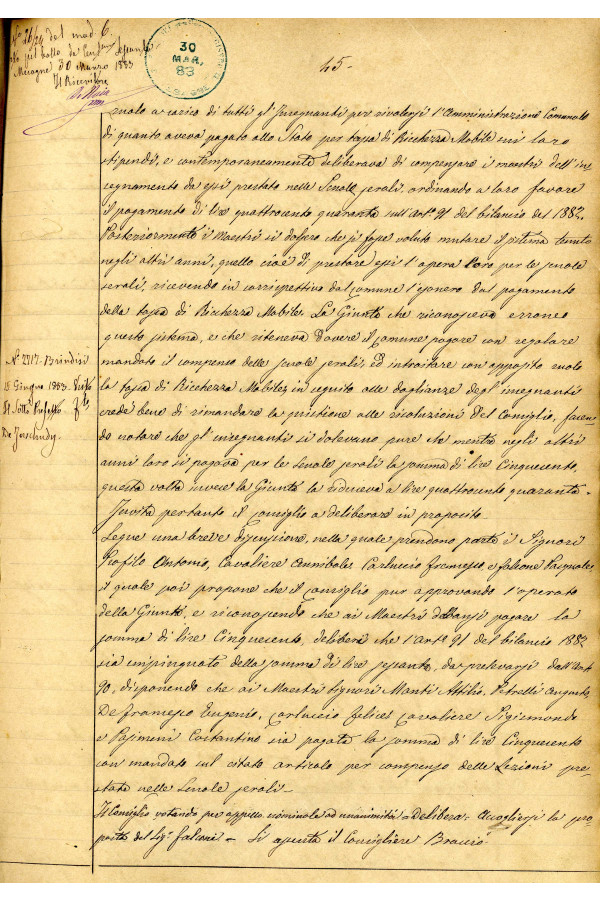 N° 26/24 del mod. 6.
Mesagne 30 Marzo 1883
Il Ricevitore
30
MAR.
83
45-
ruolo a carico di tutti gl'Insegnanti per rivolersi l'Amministrazione Comunale
di quanto aveva pagato allo Stato per tassa di Ricchezza Mobile sui loro
stipendi, e contemporaneamente deliberava di compensare i maestri dell'in
segnamento da essi prestato nelle Scuole serali, ordinando a loro favore
il pagamento di lire quattrocento quaranta sull'art° 91 del bilancio del 1882.
Posteriormente i Maestri si dolsero che si fosse voluto mutare il sistema tenuto
negli altri anni, quello cioè di prestare essi l'opera loro per le scuole
serali, ricevendo in corrispettivo dal Comune l'esonero dal pagamento
della tassa di Ricchezza Mobile. La Giunta che riconosceva erroneo
questo sistema, e che riteneva dovere il Comune pagare con regolare
mandato il compenso delle scuole serali, ed introitare con apposito ruolo
la tassa di Ricchezza Mobile, in seguito alle doglianze degl'insegnanti
crede bene di rimandare la quistione alle risoluzioni del Consiglio, facen
do notare che gl'insegnanti si dolevano pure che mentre negli altri
anni loro si pagava per le scuole serali la somma di lire Cinquecento,
questa volta invece la Giunta la riduceva a lire quattrocento quaranta.
Invita pertanto il Consiglio a deliberare in proposito.
Segue una breve discussione, nella quale prendono parte i Signori
Profilo Antonio, Cavaliere Annibale, Carluccio Francesco e Falcone Pasquale,
il quale poi propone che il Consiglio pur approvando l'operato
della Giunta, e riconoscendo che ai Maestri debbansi pagare la
somma di lire Cinquecento, delibera che l'art° 91 del bilancio 1882
sia impinguato della somma di lire sessanta, da prelevarsi dall'art
90, disponendo che ai Maestri Signori Manti Attilio, Petrelli Augusto,
De Francesco Eugenio, Carluccio Felice, Cavaliere Sigismondo
e Pasimeni Costantino sia pagata la somma di lire Cinquecento
con mandato sul citato articolo per compenso delle Lezioni pre
state nelle Scuole serali-
Il Consiglio votando per appello nominale ad unanimità - Delibera: Accogliersi la pro
posta del Sig. Falcone - Si assenta il Consigliere Braccio.
N° 2717-Brindisi
15 Giugno 1883. Visto
Il Sotto Prefetto